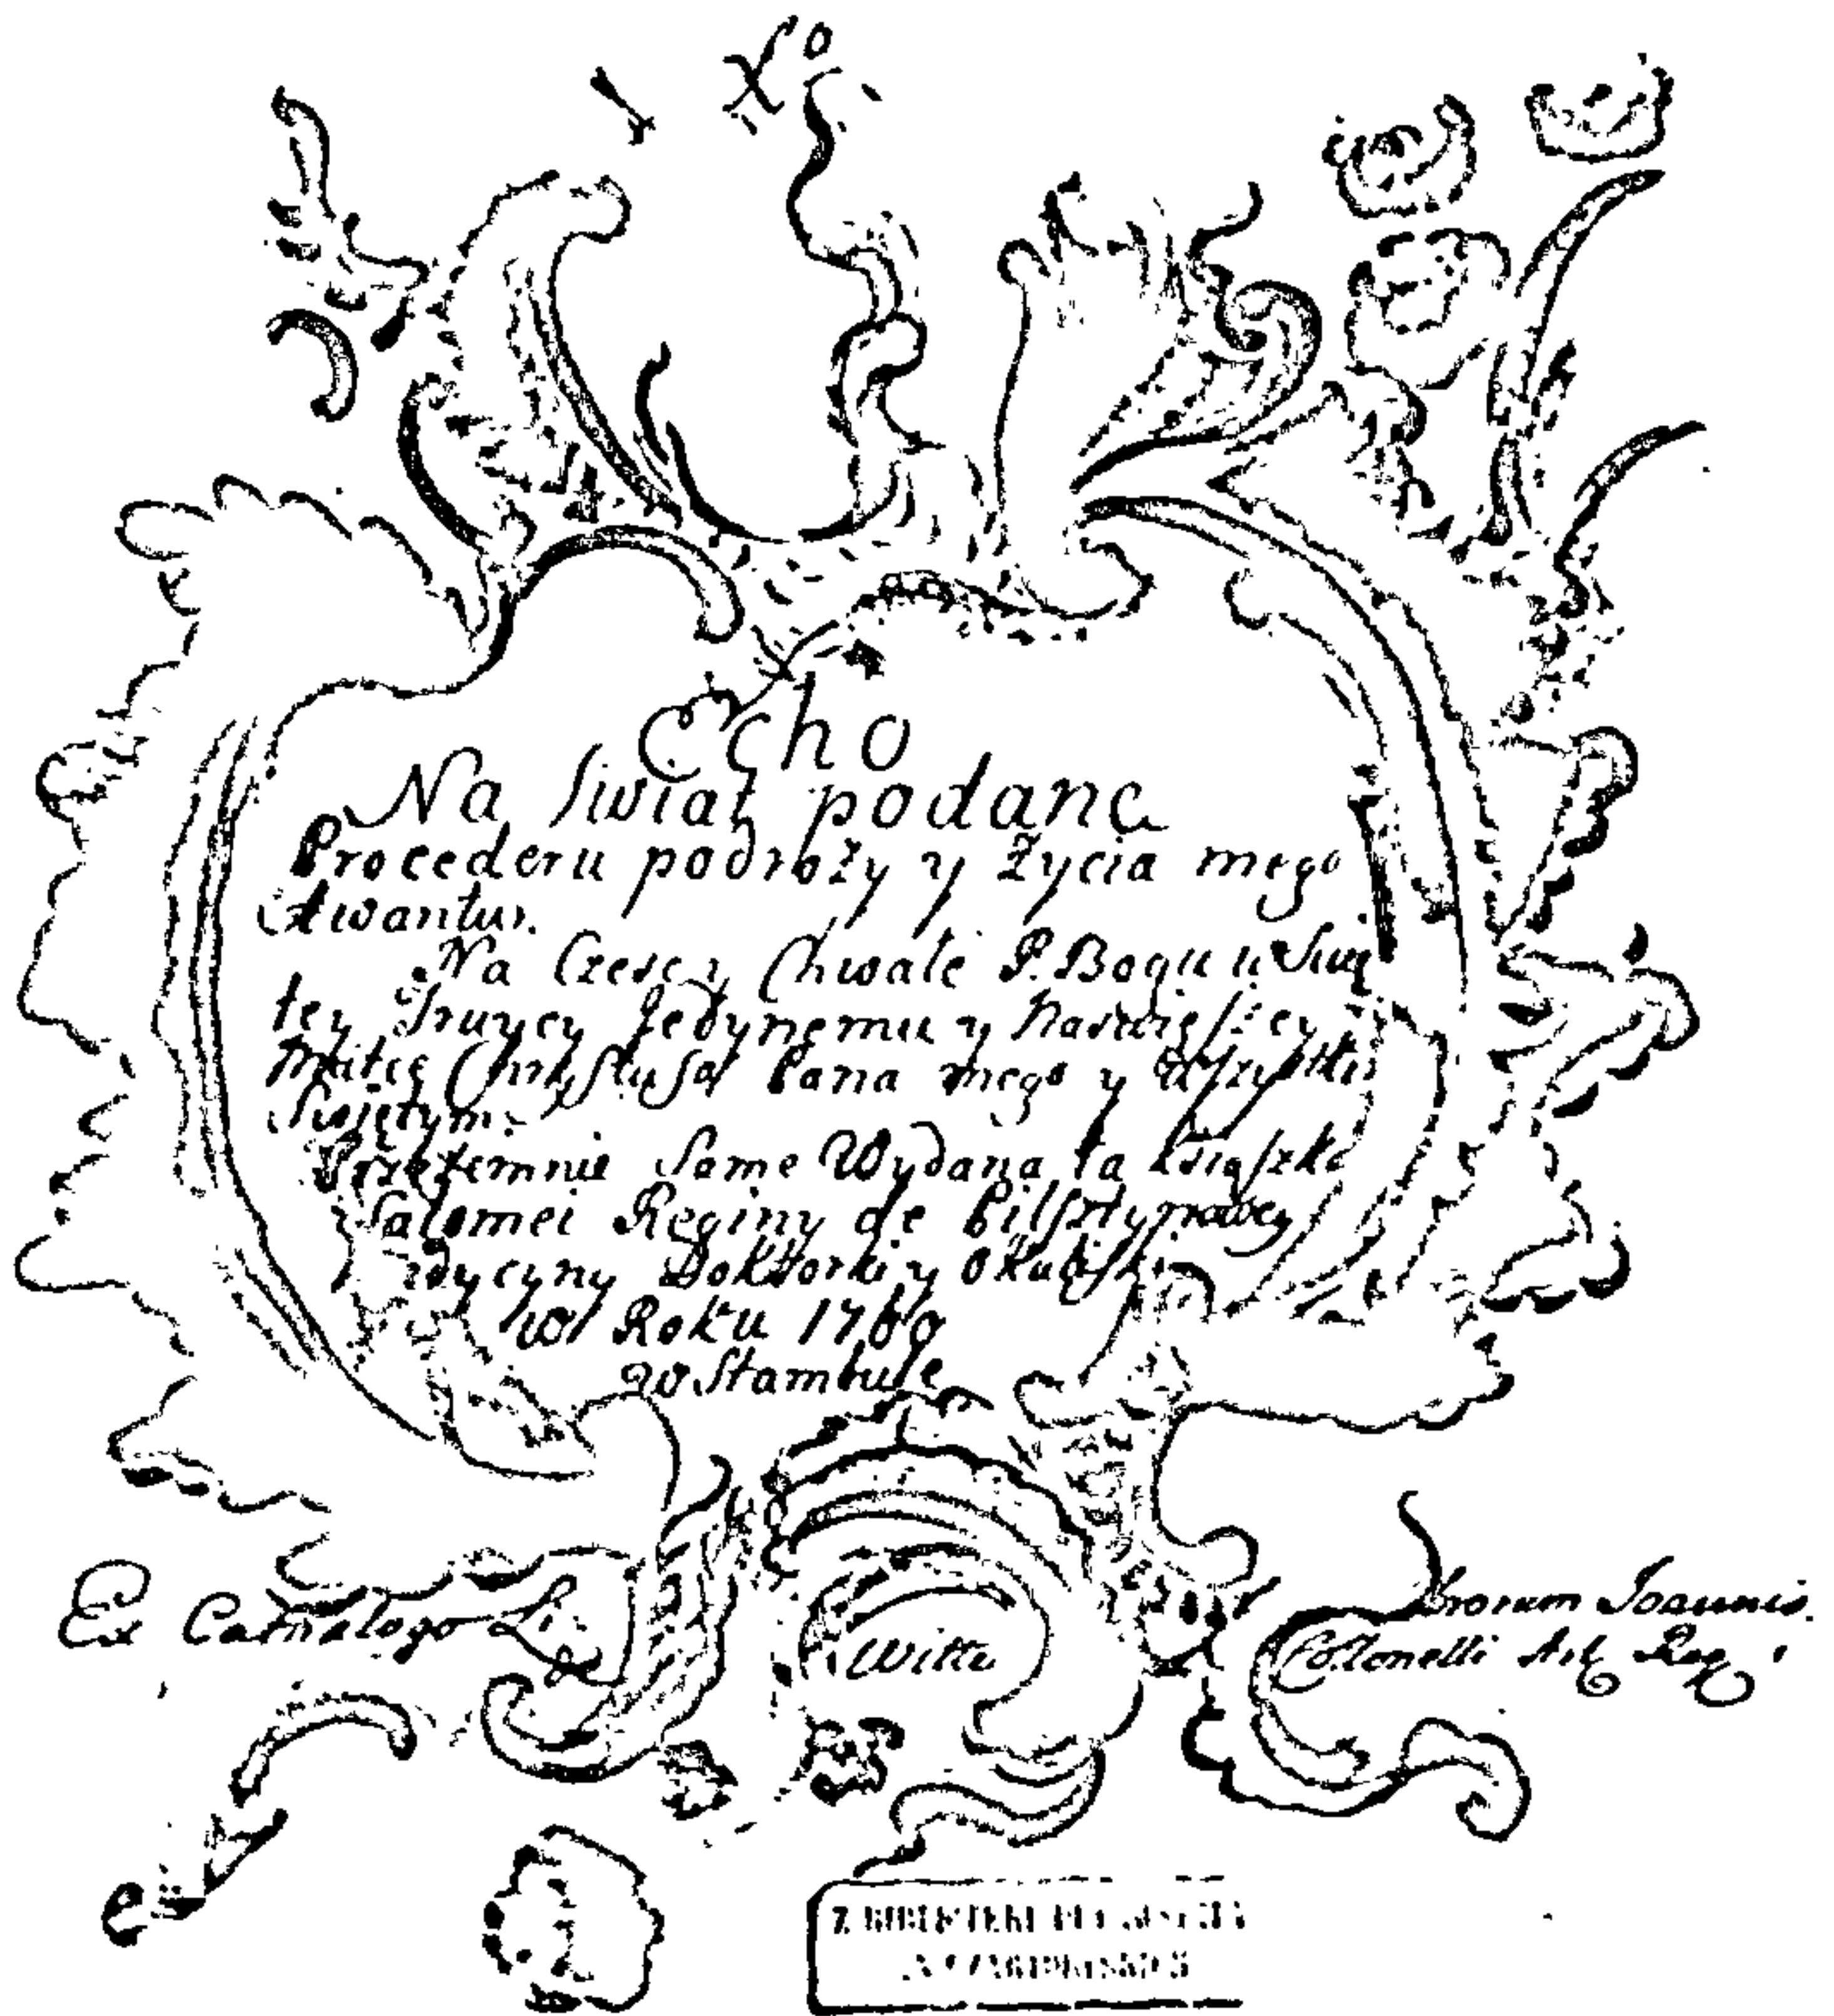 Echo
Na swiat podane
Procederu podroży y Życia mego
Awantur.
Na Czesc y Chwałe P. Bogu w Swię
tey Truycy Jedynemu y Naswięszey
Matce Chrystusa Pana mego y Wszystkim
Swiętym.
Przezemnie Same Wydana ta ksiąszka
Salomei Reginy de Pilsztynowey
Medycyny Doktorki y Okulistki
w Roku 1760
w Stambule
Ex Catalogo Li- brorum Joannis
de Witte Colonelli Art Reg
Z BIBLIOTEKI